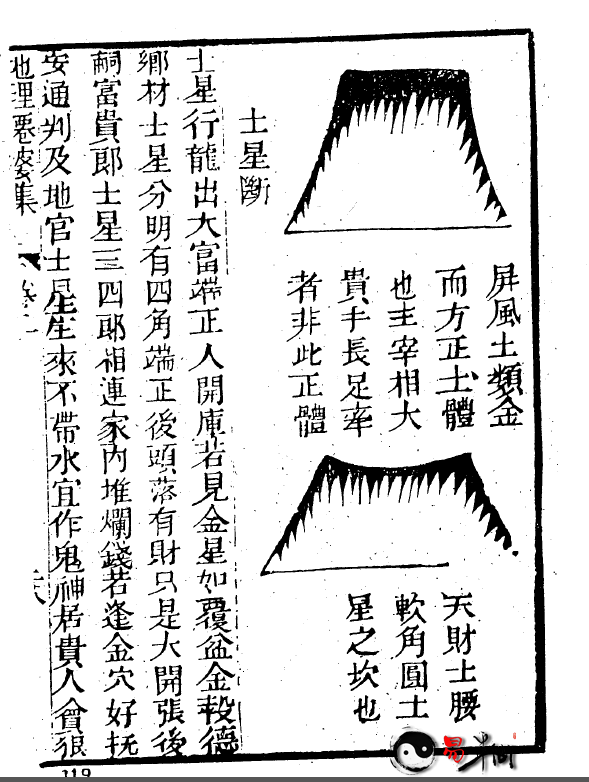 屏風土類金
而方正土體
也主宰相大
貴手長足牽
者非此正體
天財土腰
軟角圓土
星之坎也
土星斷
土星行龍出大富端正人開庫若見金星如覆盆金穀德
鄉材士星分明有四角端正後頭落有財只是大開張後
嗣富貴郎士星三四郎相連家內堆爛錢若逢金穴好抚
安通判及地官士星生來不帶水宜作鬼神居貴人會很
地理
集
119